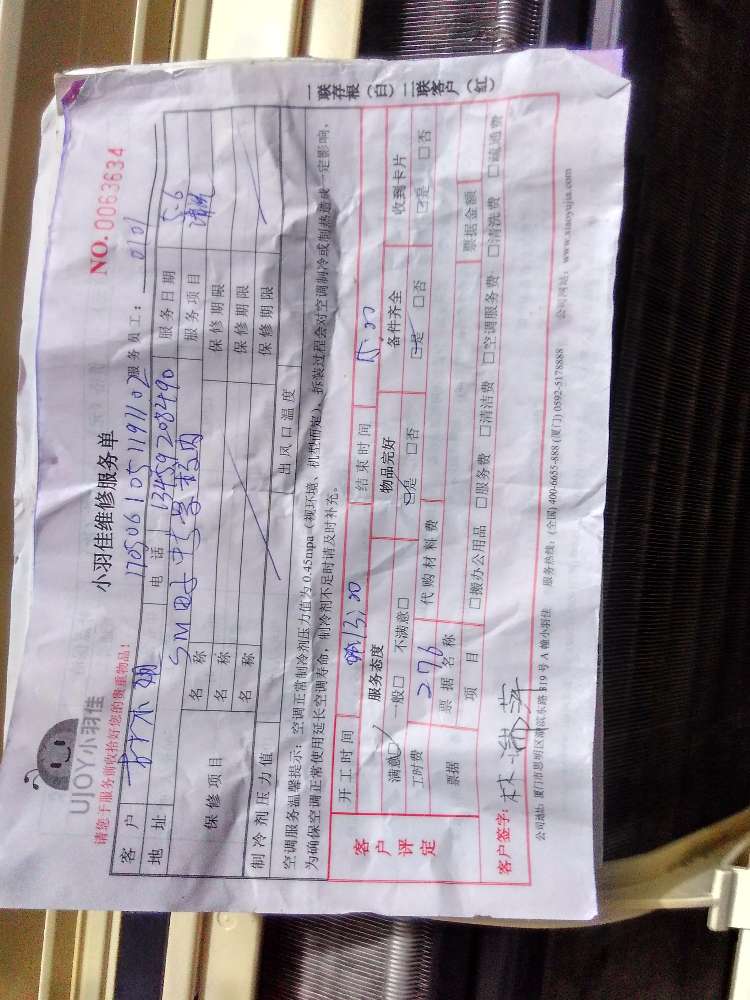 UJOY小羽佳
小羽佳维修服务单
NO. 0063634
请您于服务前收拾好您的贵重物品!
170506105119102 服务员工: 0101
客户
电话 13459208490 服务日期 5.6
地址 校内 服务项目 清洗
保修项目
名称 保修期限
名称 保修期限
名称 保修期限
制冷剂压力值 出风口温度
空调服务温馨提示: 空调正常制冷剂压力值为0.45mpa (视环境、机型而定), 拆装过程会对空调制冷或制热造成一定影响,
为确保空调正常使用延长空调寿命, 制冷剂不足时请及时补充。
一联存根(白)二联客户(红)
客户评定
开工时间 13:00 结束时间 15:00
服务态度 物品完好 备件齐全 收到卡片
满意☑ 一般□ 不满意□ ☑是 □否 ☑是 □否 ☑是 □否
工时费 276 代购材料费
票据 票据名称 票据金额
项目 □搬办公用品 □服务费 □清洁费 □空调服务费 □清洗费 □疏通费
客户签字: 林
公司地址: 厦门市思明区湖滨东路319号A幢小羽佳 服务热线: (全国) 400-6655-888 (厦门) 0592-5178888 公司网站: www.xiaoyujia.com